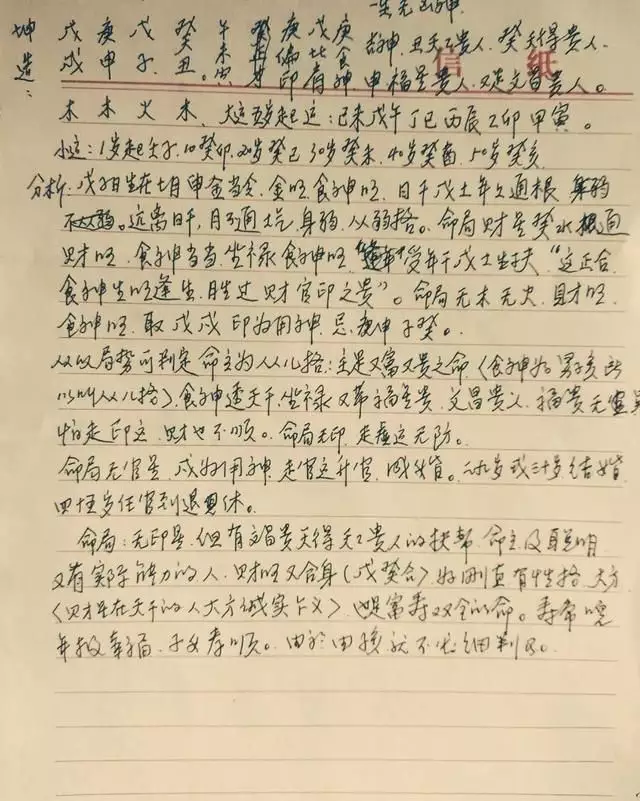 一生无凶神
坤 戊 庚 戊 癸 午 癸 庚 戊 庚 吉神、丑天乙贵人、癸天得贵人、
造: 戌 申 子 丑。未 丑 偏 比 食 印 肩 神、申福星贵人、又是文昌贵人。
信 纸
木 木 火 木、大运五岁起运:己未戊午丁巳丙辰乙卯甲寅。
小运:1岁起壬子、10癸卯、20岁癸巳30岁癸未、40岁癸酉、50岁癸亥
分析:戊子日生在七月申金当令、金旺、食神旺、日干戊土年久通根 身弱
不从弱。远离日干,月不通土元、身弱、从弱格。命局财星癸水根通
财旺、食神当、坐禄食神旺 受年干戊土生扶“这正合
食神生旺逢生、胜过财官印之贵”。命局无木无火、财旺、
食神旺、取戊戌印为用神、忌庚申子癸。
从以局势可判定命主为从儿格:主是又富又贵之命〈食神为男孩所
以叫从儿格〉、食神透天干、坐禄又革福星贵、文昌贵人、福贵无
怕走印运、财也不顺。命局无印、走运无防。
命局无官星、戊为用神、走官运升官、或结婚。岁或三十岁结婚
四十五岁任官到退休。
命局:无印星、但有文昌贵天得天乙贵人的扶帮、命主及聪明
又有实际能力的人、财旺又合身(戊癸合)好刚直有性格、大方
〈财星在天干的人大方诚实、义〉、是富寿双全的命。寿常晚
年极幸福、子女孝顺。由於由孩就不必细判了。